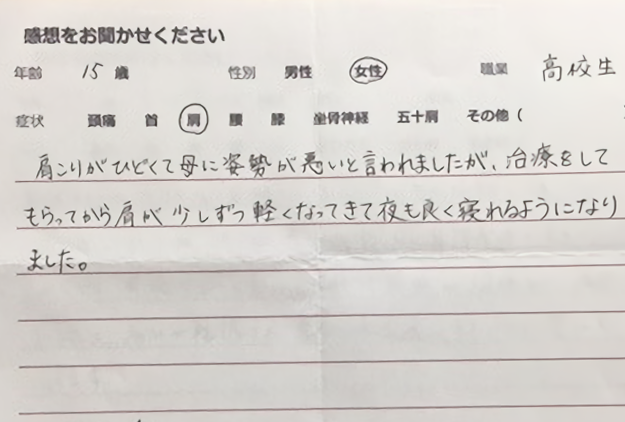 感想をお聞かせください
年齢 15 歳 性別 男性 女性 職業 高校生
症状 頭痛 首 肩 腰 膝 坐骨神経 五十肩 その他（
肩こりがひどくて母に姿勢が悪いと言われましたが、治療をして
もらってから肩が少しずつ軽くなってきて夜も良く寝れるようになり
ました。